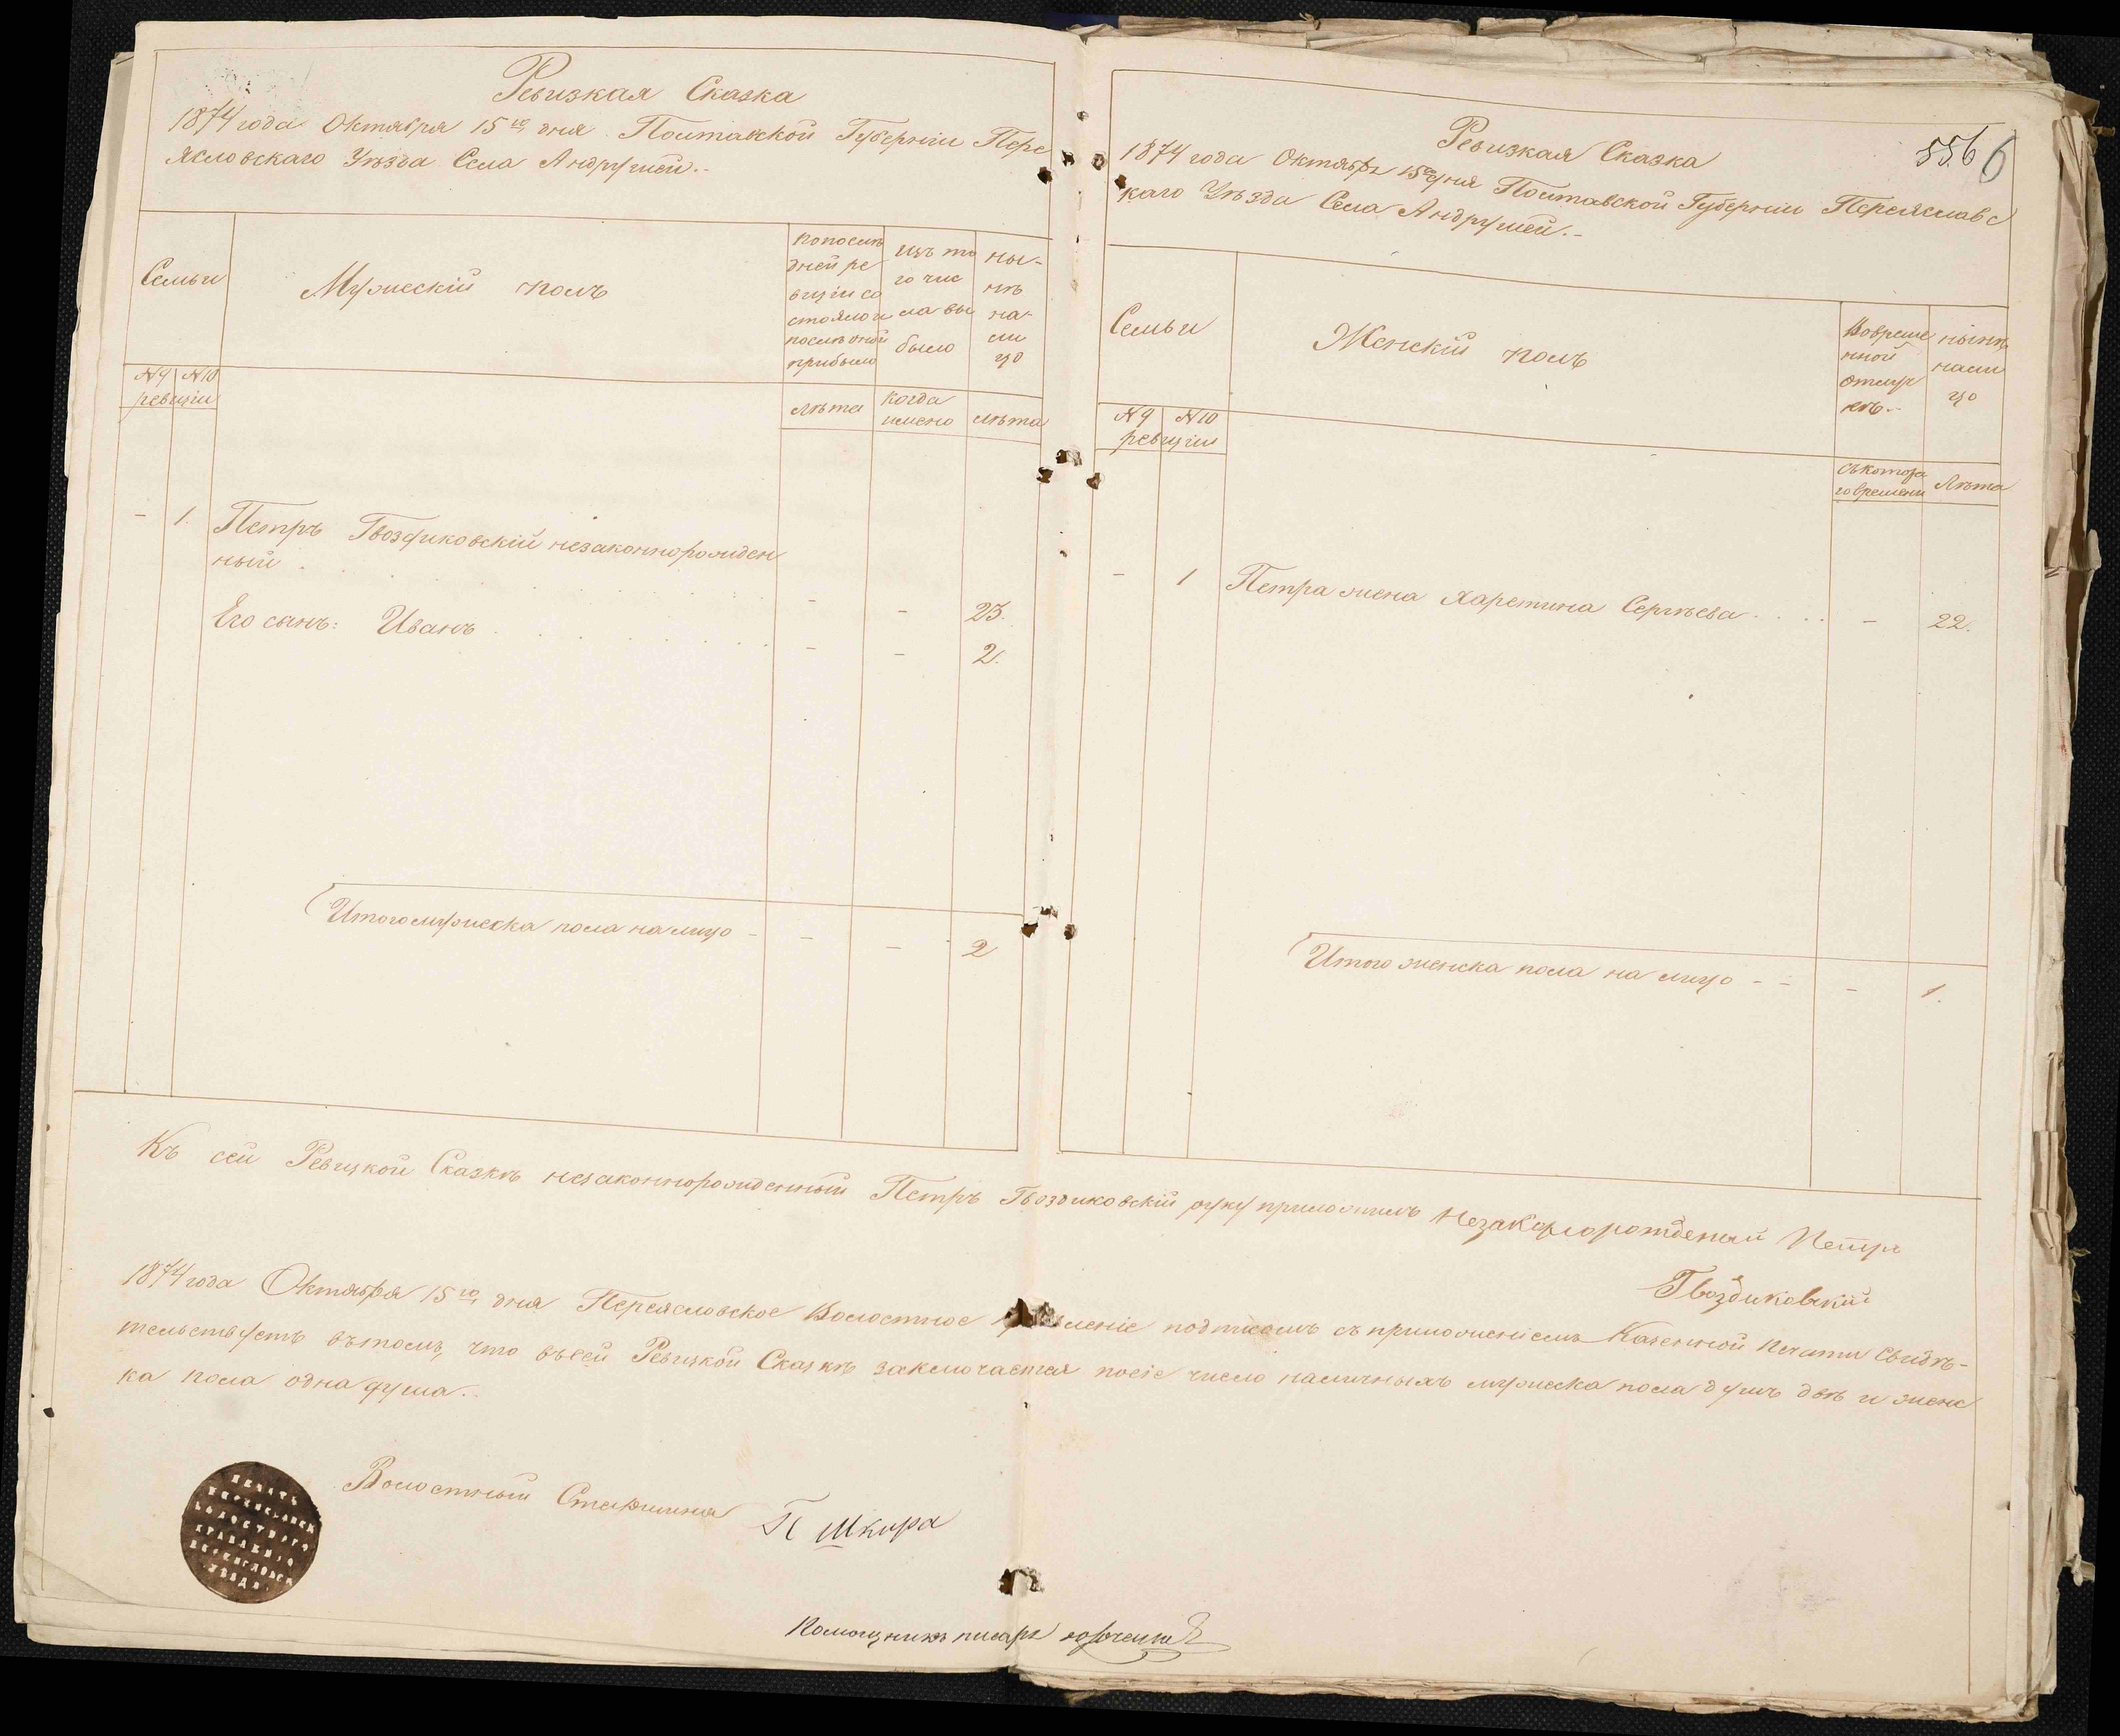 Ревизкая Сказка
1874 года Октября 15го дня Полтавской Губерніи Пере
ясловскаго Уѣзда Села Андрушей.
Семьи
Мужескій полъ
по послѣ
дней ре
визіи со
стояло и
послѣ оной
прибыло
изъ то
го чис
ла вы
было
ны-
нѣ
на-
ли
цо
№9 №10
ревизіи
лѣта
когда
имено
лѣта
- 1. Петръ Гвоздиковскій незаконнорожден
ный . - - 23.
Его сынъ: Иванъ - - 2.
Итого мужеска пола на лицо - - - 2
Ревизкая Сказка
556 6
1874 года Октябрь 15го дня Полтавской Губерніи Переяславс
каго Уѣзда Села Андрушей.-
Семьи
Женскій полъ
Вовреме
нной
отлуч
кѣ.-
нынѣ
нали
цо
№9 №10
ревизіи
съ котора
го времени
Лѣта
- 1 Петра жена Харетина Сергѣева . . . . - 22.
Итого женска пола на лицо - - - 1.
Къ сей Ревизкой Сказкѣ незаконнорожденный Петръ Гвоздиковскій руку приложилъ Незаконорожденый Петръ
Гвоздиковский
1874 года Октября 15го дня Переясловское Волостное леніе подписомъ съ приложеніемъ Казенной Печати Свидѣ-
тельствуетъ въ томъ, что въ сей Ревизкой Сказкѣ заключается посіе число наличныхъ мужеска пола душъ двѣ и женс
ка пола одна душа..
Волостный Старшина П Шкира
ПЕЧАТЬ
ПЕРЕЯСЛОВСК
ВОЛОСТНАГО
ПРАВЛЕНІЯ
ПЕРЕЯСЛОВСК
УѢЗДА.
Помощникъ писаря